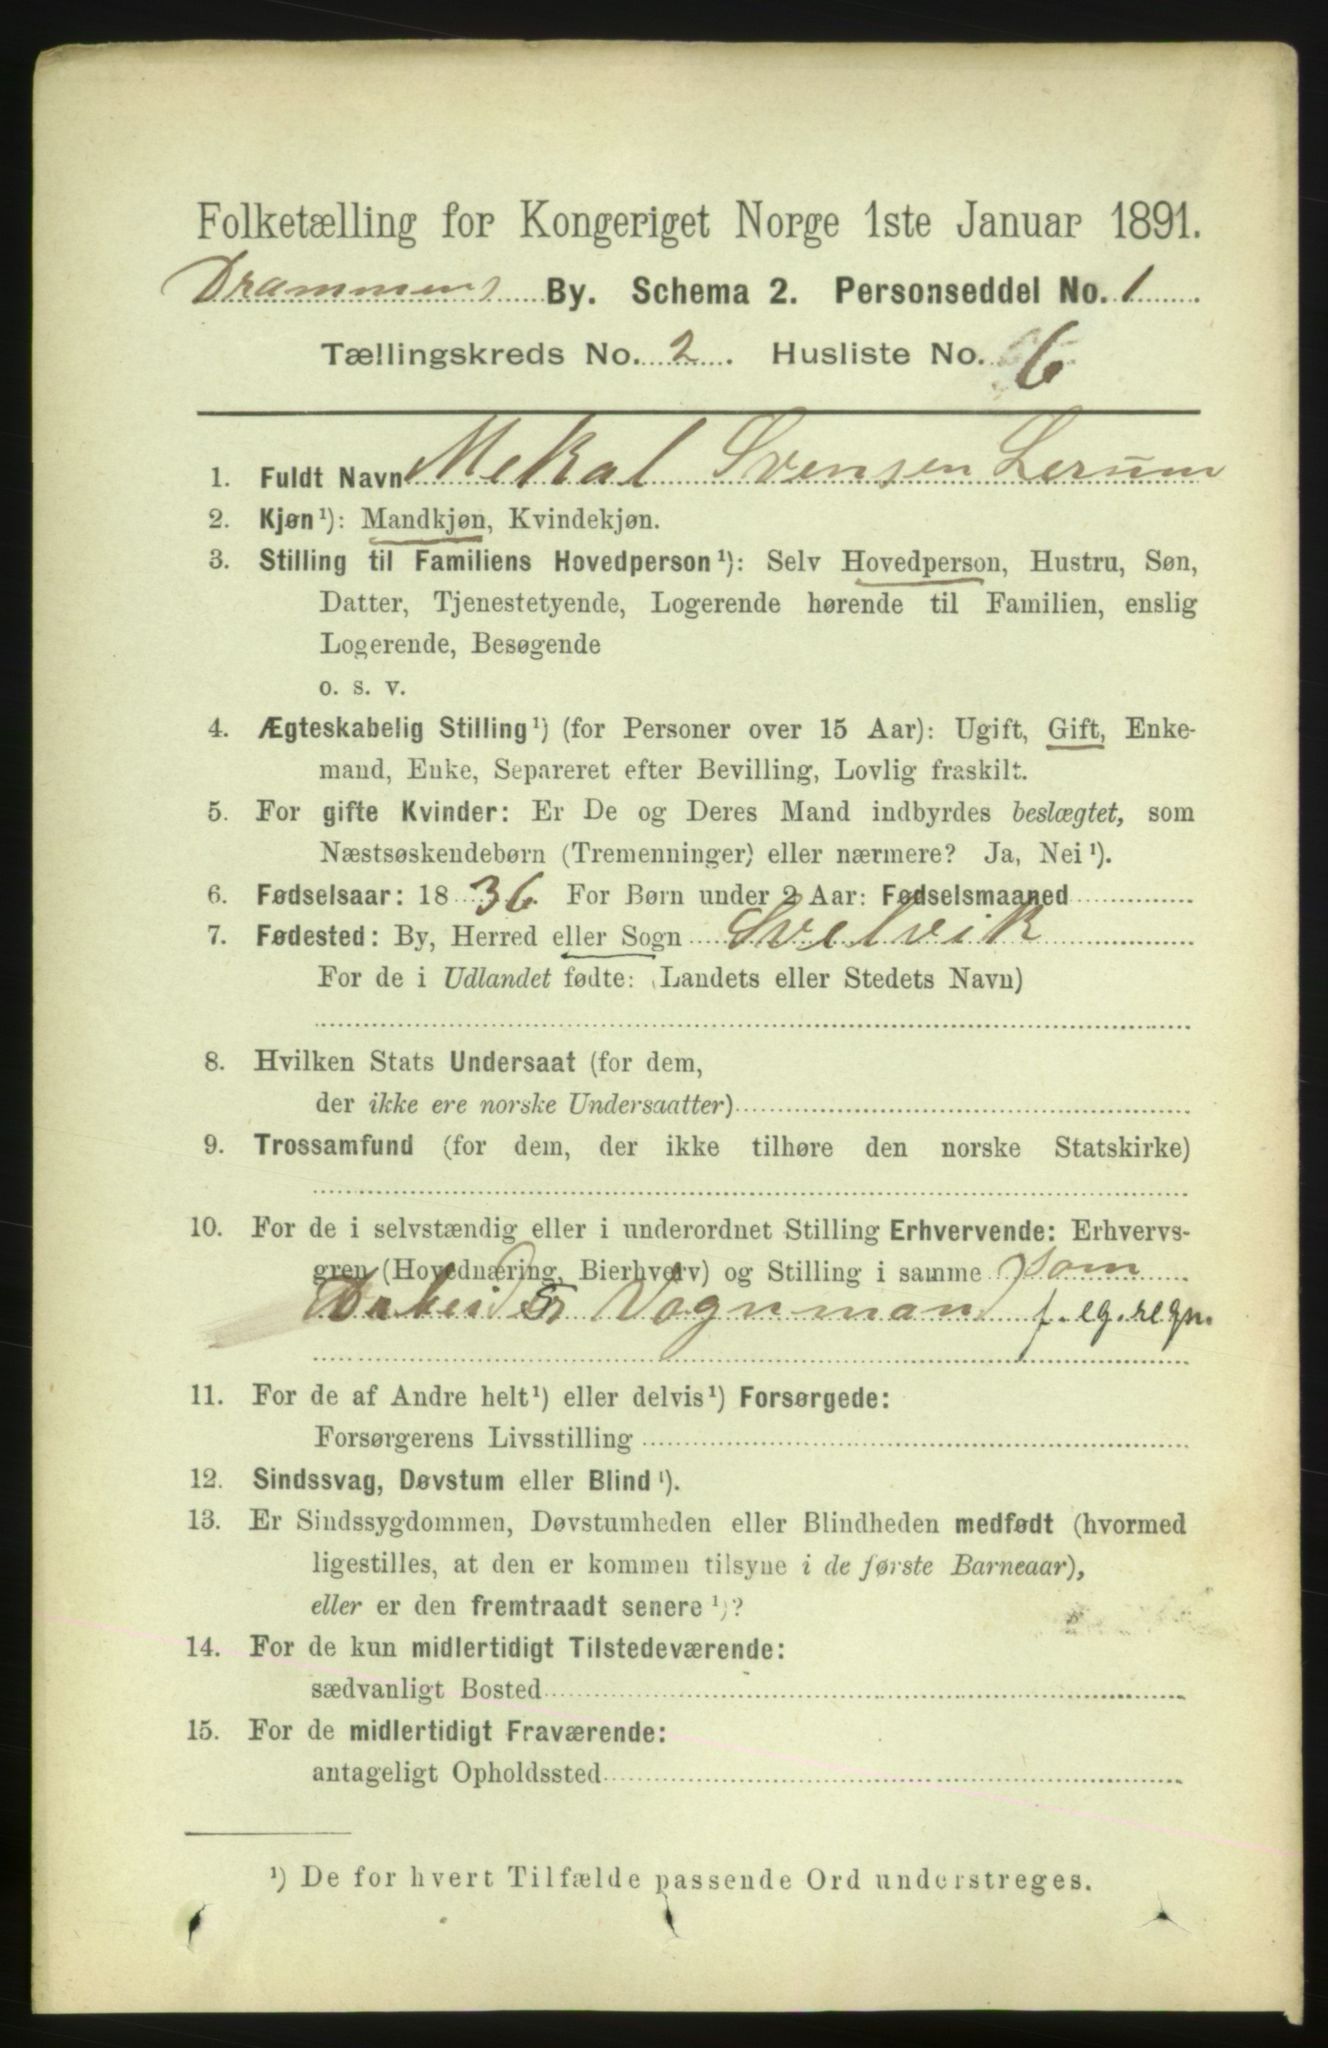 Folketælling for Kongeriget Norge 1ste Januar 1891.
Drammens By. Schema 2. Personseddel No. 1
Tællingskreds No. 2. Husliste No. 6
1. Fuldt Navn Mekal Svensen Lerum
2. Kjøn¹): Mandkjøn, Kvindekjøn.
3. Stilling til Familiens Hovedperson¹): Selv Hovedperson, Hustru, Søn,
Datter, Tjenestetyende, Logerende hørende til Familien, enslig
Logerende, Besøgende
o. s. v.
4. Ægteskabelig Stilling¹) (for Personer over 15 Aar): Ugift, Gift, Enke-
mand, Enke, Separeret efter Bevilling, Lovlig fraskilt.
5. For gifte Kvinder: Er De og Deres Mand indbyrdes beslægtet, som
Næstsøskendebørn (Tremenninger) eller nærmere? Ja, Nei¹).
6. Fødselsaar: 1836. For Børn under 2 Aar: Fødselsmaaned
7. Fødested: By, Herred eller Sogn Svelvik
For de i Udlandet fødte: (Landets eller Stedets Navn)
8. Hvilken Stats Undersaat (for dem,
der ikke ere norske Undersaatter)
9. Trossamfund (for dem, der ikke tilhøre den norske Statskirke)
10. For de i selvstændig eller i underordnet Stilling Erhvervende: Erhvervs-
gren (Hovednæring, Bierhverv) og Stilling i samme som
Arbeider Vognmand f. eg. regn.
11. For de af Andre helt¹) eller delvis¹) Forsørgede:
Forsørgerens Livsstilling
12. Sindssvag, Døvstum eller Blind¹).
13. Er Sindssygdommen, Døvstumheden eller Blindheden medfødt (hvormed
ligestilles, at den er kommen tilsyne i de første Barneaar),
eller er den fremtraadt senere¹)?
14. For de kun midlertidigt Tilstedeværende:
sædvanligt Bosted
15. For de midlertidigt Fraværende:
antageligt Opholdssted
¹) De for hvert Tilfælde passende Ord understreges.